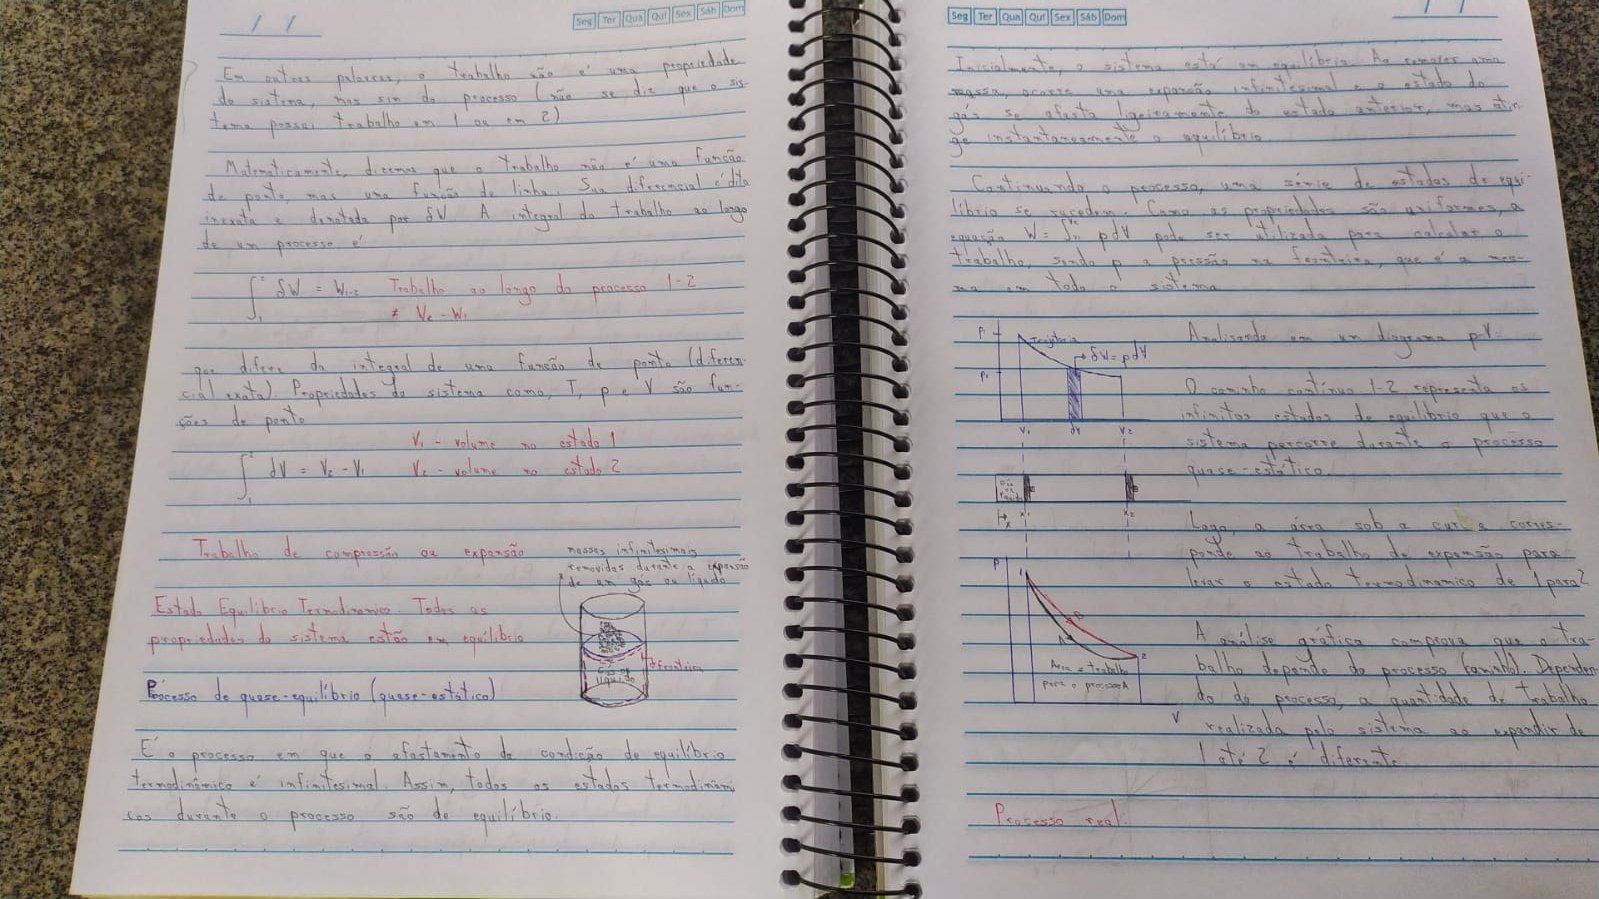 / /
Seg Ter Qua Qui Sex Sáb Dom
Em outras palavras, o trabalho não é uma propriedade
do sistema, mas sim do processo (não se diz que o sis-
tema possui trabalho em 1 ou em 2)
Matematicamente, dizemos que o trabalho não é uma função
de ponto, mas uma função de linha. Sua diferencial é dita
inexata e denotada por δW. A integral do trabalho ao longo
de um processo é
∫₁² δW = W₁₋₂ Trabalho ao longo do processo 1-2
≠ W₂ - W₁
que difere da integral de uma função de ponto (diferen-
cial exata). Propriedades do sistema como, T, p e V são fun-
ções de ponto
V₁ - volume no estado 1
∫₁² dV = V₂ - V₁ V₂ - volume no estado 2
Trabalho de compressão ou expansão
massas infinitesimais
removidas durante a expansão
de um gás ou líquido
Estado Equilíbrio Termodinâmico. Todas as
propriedades do sistema estão em equilíbrio
fronteira
Gás ou
líquido
Processo de quase-equilíbrio (quase-estático)
É o processo em que o afastamento de condição de equilíbrio
termodinâmico é infinitesimal. Assim, todos os estados termodinâmi
cos durante o processo são de equilíbrio.
/ /
Seg Ter Qua Qui Sex Sáb Dom
Inicialmente, o sistema está em equilíbrio. Ao remover uma
massa, ocorre uma expansão infinitesimal e o estado do
gás se afasta ligeiramente do estado anterior, mas atin-
ge instantaneamente o equilíbrio.
Continuando o processo, uma série de estados de equi-
líbrio se sucedem. Como as propriedades são uniformes, a
equação W = ∫ p dV pode ser utilizada para calcular o
trabalho, sendo p a pressão na fronteira, que é a mes-
ma em todo o sistema
Analisando em um diagrama pV.
P₁
Trajetória
δW = pdV
P₂
V₁ dV V₂
O caminho contínuo 1-2 representa os
infinitos estados de equilíbrio que o
sistema percorre durante o processo
quase-estático.
Gás
ou
líquido
x x₁ x₂
Logo, a área sob a curva corres-
ponde ao trabalho de expansão para
levar o estado termodinâmico de 1 para 2
P
1
B
A
2
Área = trabalho
para o processo A
V
A análise gráfica comprova que o tra-
balho depende do processo (caminho). Dependen-
do do processo, a quantidade de trabalho
realizada pelo sistema ao expandir de
1 até 2 é diferente.
Processo real: